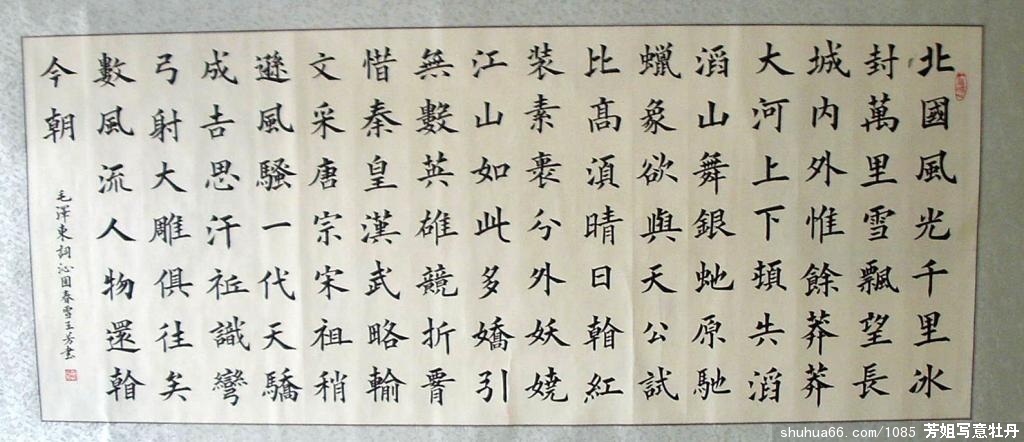 北國風光千里冰
封萬里雪飄望長
城内外惟餘莽莽
大河上下頓失滔
滔山舞銀虵原馳
蠟象欲與天公試
比髙須晴日看紅
装素裹分外妖嬈
江山如此多嬌引
無數英雄競折腰
惜秦皇漢武略輸
文采唐宗宋祖稍
遜風騷一代天驕
成吉思汗祗識彎
弓射大雕俱往矣
數風流人物還看
今朝
毛澤東詞沁园春雪王芳書
shuhua66.com/1085 芳姐写意牡丹